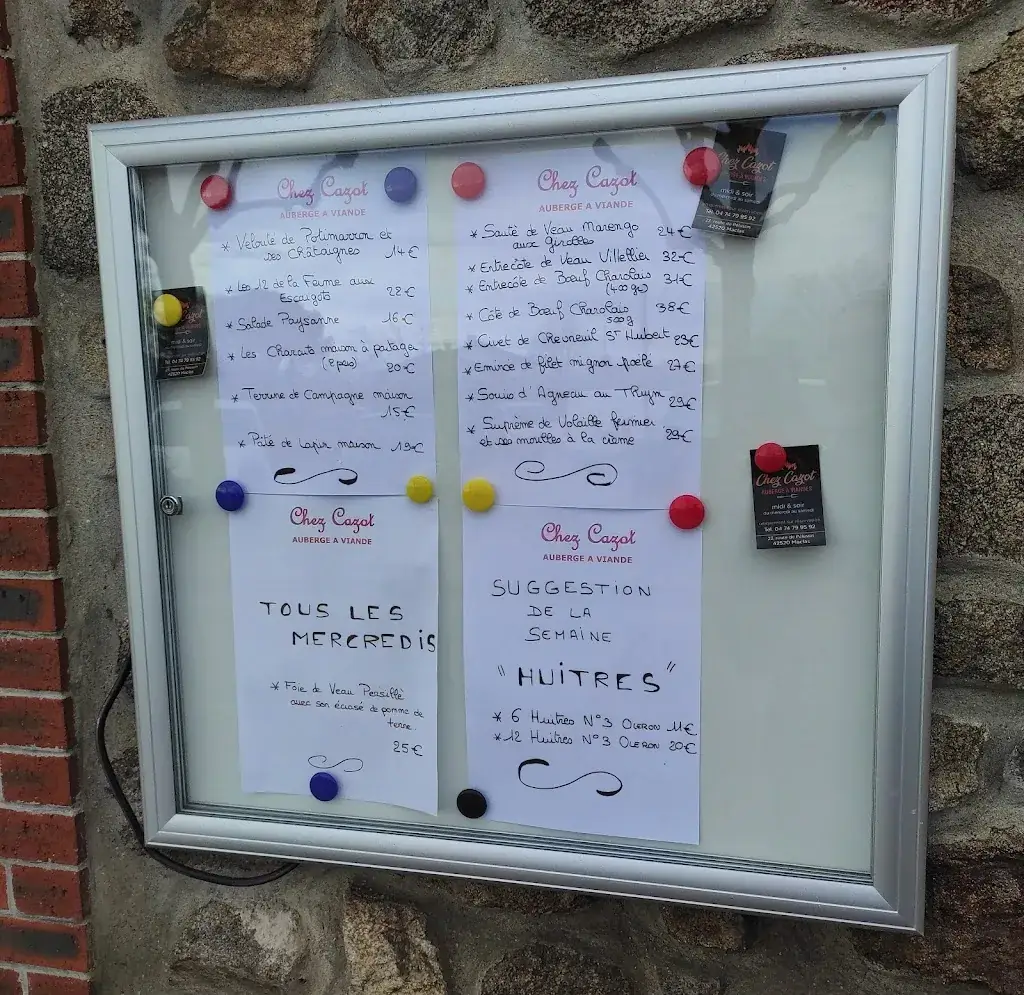 Chez Cazot
AUBERGE A VIANDE
* Velouté de Potimarron et
ses Châtaignes 14€
* Les 12 de la Ferme aux
Escargots 22€
* Salade Paysanne 16€
* Les Charcuts maison à partager
(2 pers) 20€
* Terrine de Campagne maison
15€
* Pâté de Lapin maison 19€
Chez Cazot
AUBERGE A VIANDE
* Sauté de Veau Marengo 24€
aux girolles
* Entrecôte de Veau Villettier 32€
* Entrecôte de Bœuf Charolais 31€
(400 gr)
* Côte de Bœuf Charolais 38€
500g
* Civet de Chevreuil St Hubert 23€
* Emincé de filet mignon poêlé 27€
* Souris d'Agneau au Thym 29€
* Suprême de Volaille fermier
et ses morilles à la crème 29€
Chez Cazot
AUBERGE A VIANDE
TOUS LES
MERCREDIS
* Foie de Veau Persillé
avec son écrasé de pomme de
terre.
25€
Chez Cazot
AUBERGE A VIANDE
SUGGESTION
DE LA
SEMAINE
"HUITRES"
* 6 Huitres N°3 OLERON 11€
* 12 Huitres N°3 OLERON 20€
Chez Cazot
midi & soir
Tél. 04 74 79 85 92
22, route de Pélussin
42520 Maclas
Chez Cazot
AUBERGE A VIANDE
midi & soir
du mercredi au samedi
Tél. 04 74 79 85 92
22, route de Pélussin
42520 Maclas
midi & soir
Tél. 04 74 79 85 92
42520 Maclas